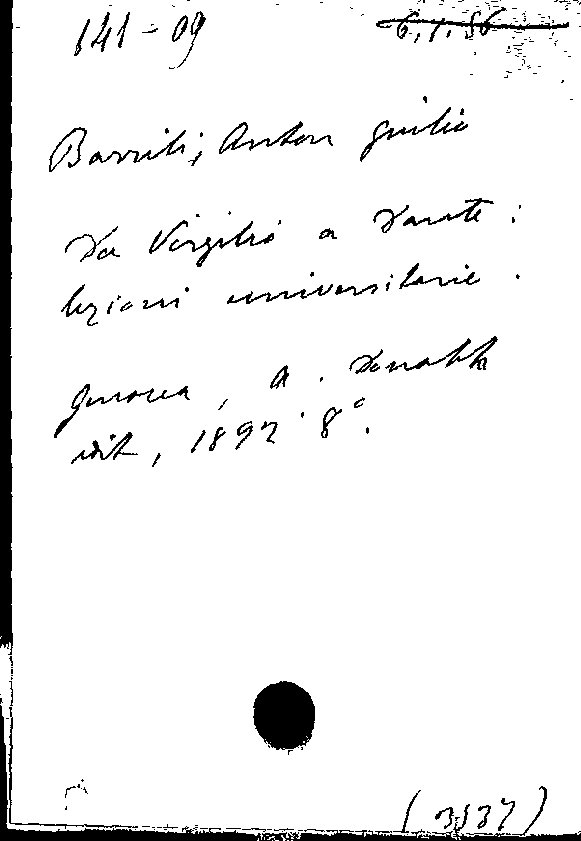 141-09
6.1.56
Barrili, Anton Giulio
Da Virgilio a Dante :
lezioni universitarie .
Genova , A . Donath
edit , 1892 . 8°.
(3537)